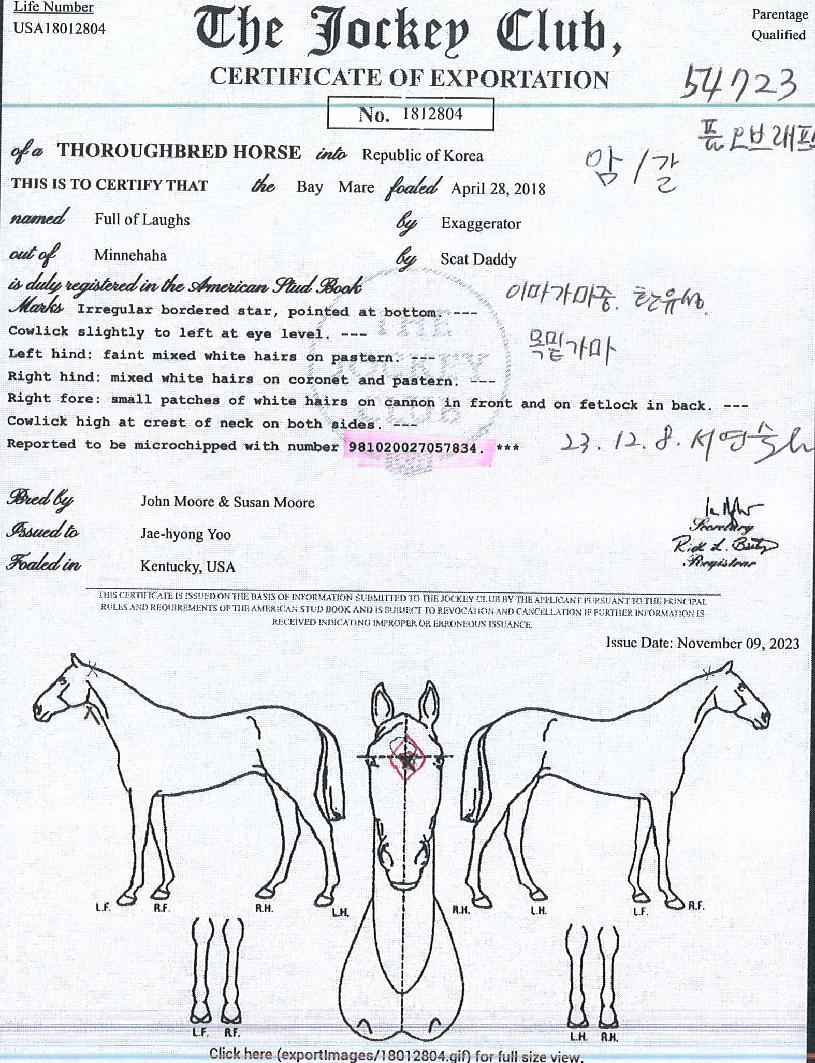 Life Number
USA18012804
The Jockey Club,
Parentage
Qualified
CERTIFICATE OF EXPORTATION
54723
No. 1812804
풀오브래프
of a THOROUGHBRED HORSE into Republic of Korea
암/갈
THIS IS TO CERTIFY THAT the Bay Mare foaled April 28, 2018
named Full of Laughs by Exaggerator
out of Minnehaha by Scat Daddy
is duly registered in the American Stud Book
이마가마중.
Marks Irregular bordered star, pointed at bottom. ---
Cowlick slightly to left at eye level. ---
목밑가마
Left hind: faint mixed white hairs on pastern. ---
Right hind: mixed white hairs on coronet and pastern. ---
Right fore: small patches of white hairs on cannon in front and on fetlock in back. ---
Cowlick high at crest of neck on both sides. ---
Reported to be microchipped with number 981020027057834. ***
23.12.8.
THE JOCKEY CLUB
Bred by John Moore & Susan Moore
Issued to Jae-hyong Yoo
Secretary
Foaled in Kentucky, USA
Registrar
THIS CERTIFICATE IS ISSUED ON THE BASIS OF INFORMATION SUBMITTED TO THE JOCKEY CLUB BY THE APPLICANT PURSUANT TO THE PRINCIPAL
RULES AND REQUIREMENTS OF THE AMERICAN STUD BOOK AND IS SUBJECT TO REVOCATION AND CANCELLATION IF FURTHER INFORMATION IS
RECEIVED INDICATING IMPROPER OR ERRONEOUS ISSUANCE.
Issue Date: November 09, 2023
L.F. R.F. R.H. L.H. R.H. L.H. L.F. R.F.
L.F. R.F. L.H. R.H.
Click here (exportImages/18012804.gif) for full size view.